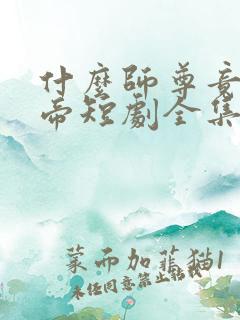 什麼師尊竟
帝短劇全集
菜而加菲猫1
未任同意禁止轉載